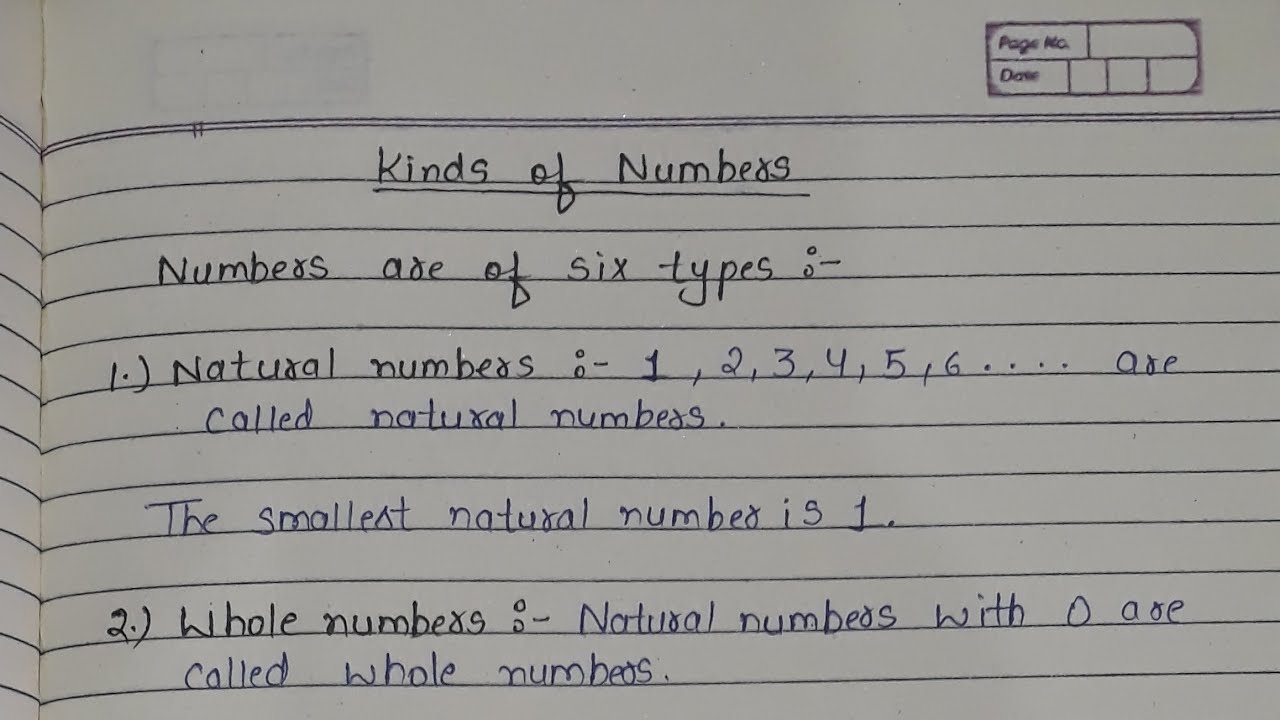 Page No.
Date
Kinds of Numbers
Numbers are of six types :-
1.) Natural numbers :- 1, 2, 3, 4, 5, 6 .... are
called natural numbers.
The smallest natural number is 1.
2.) Whole numbers :- Natural numbers with 0 are
called whole numbers.